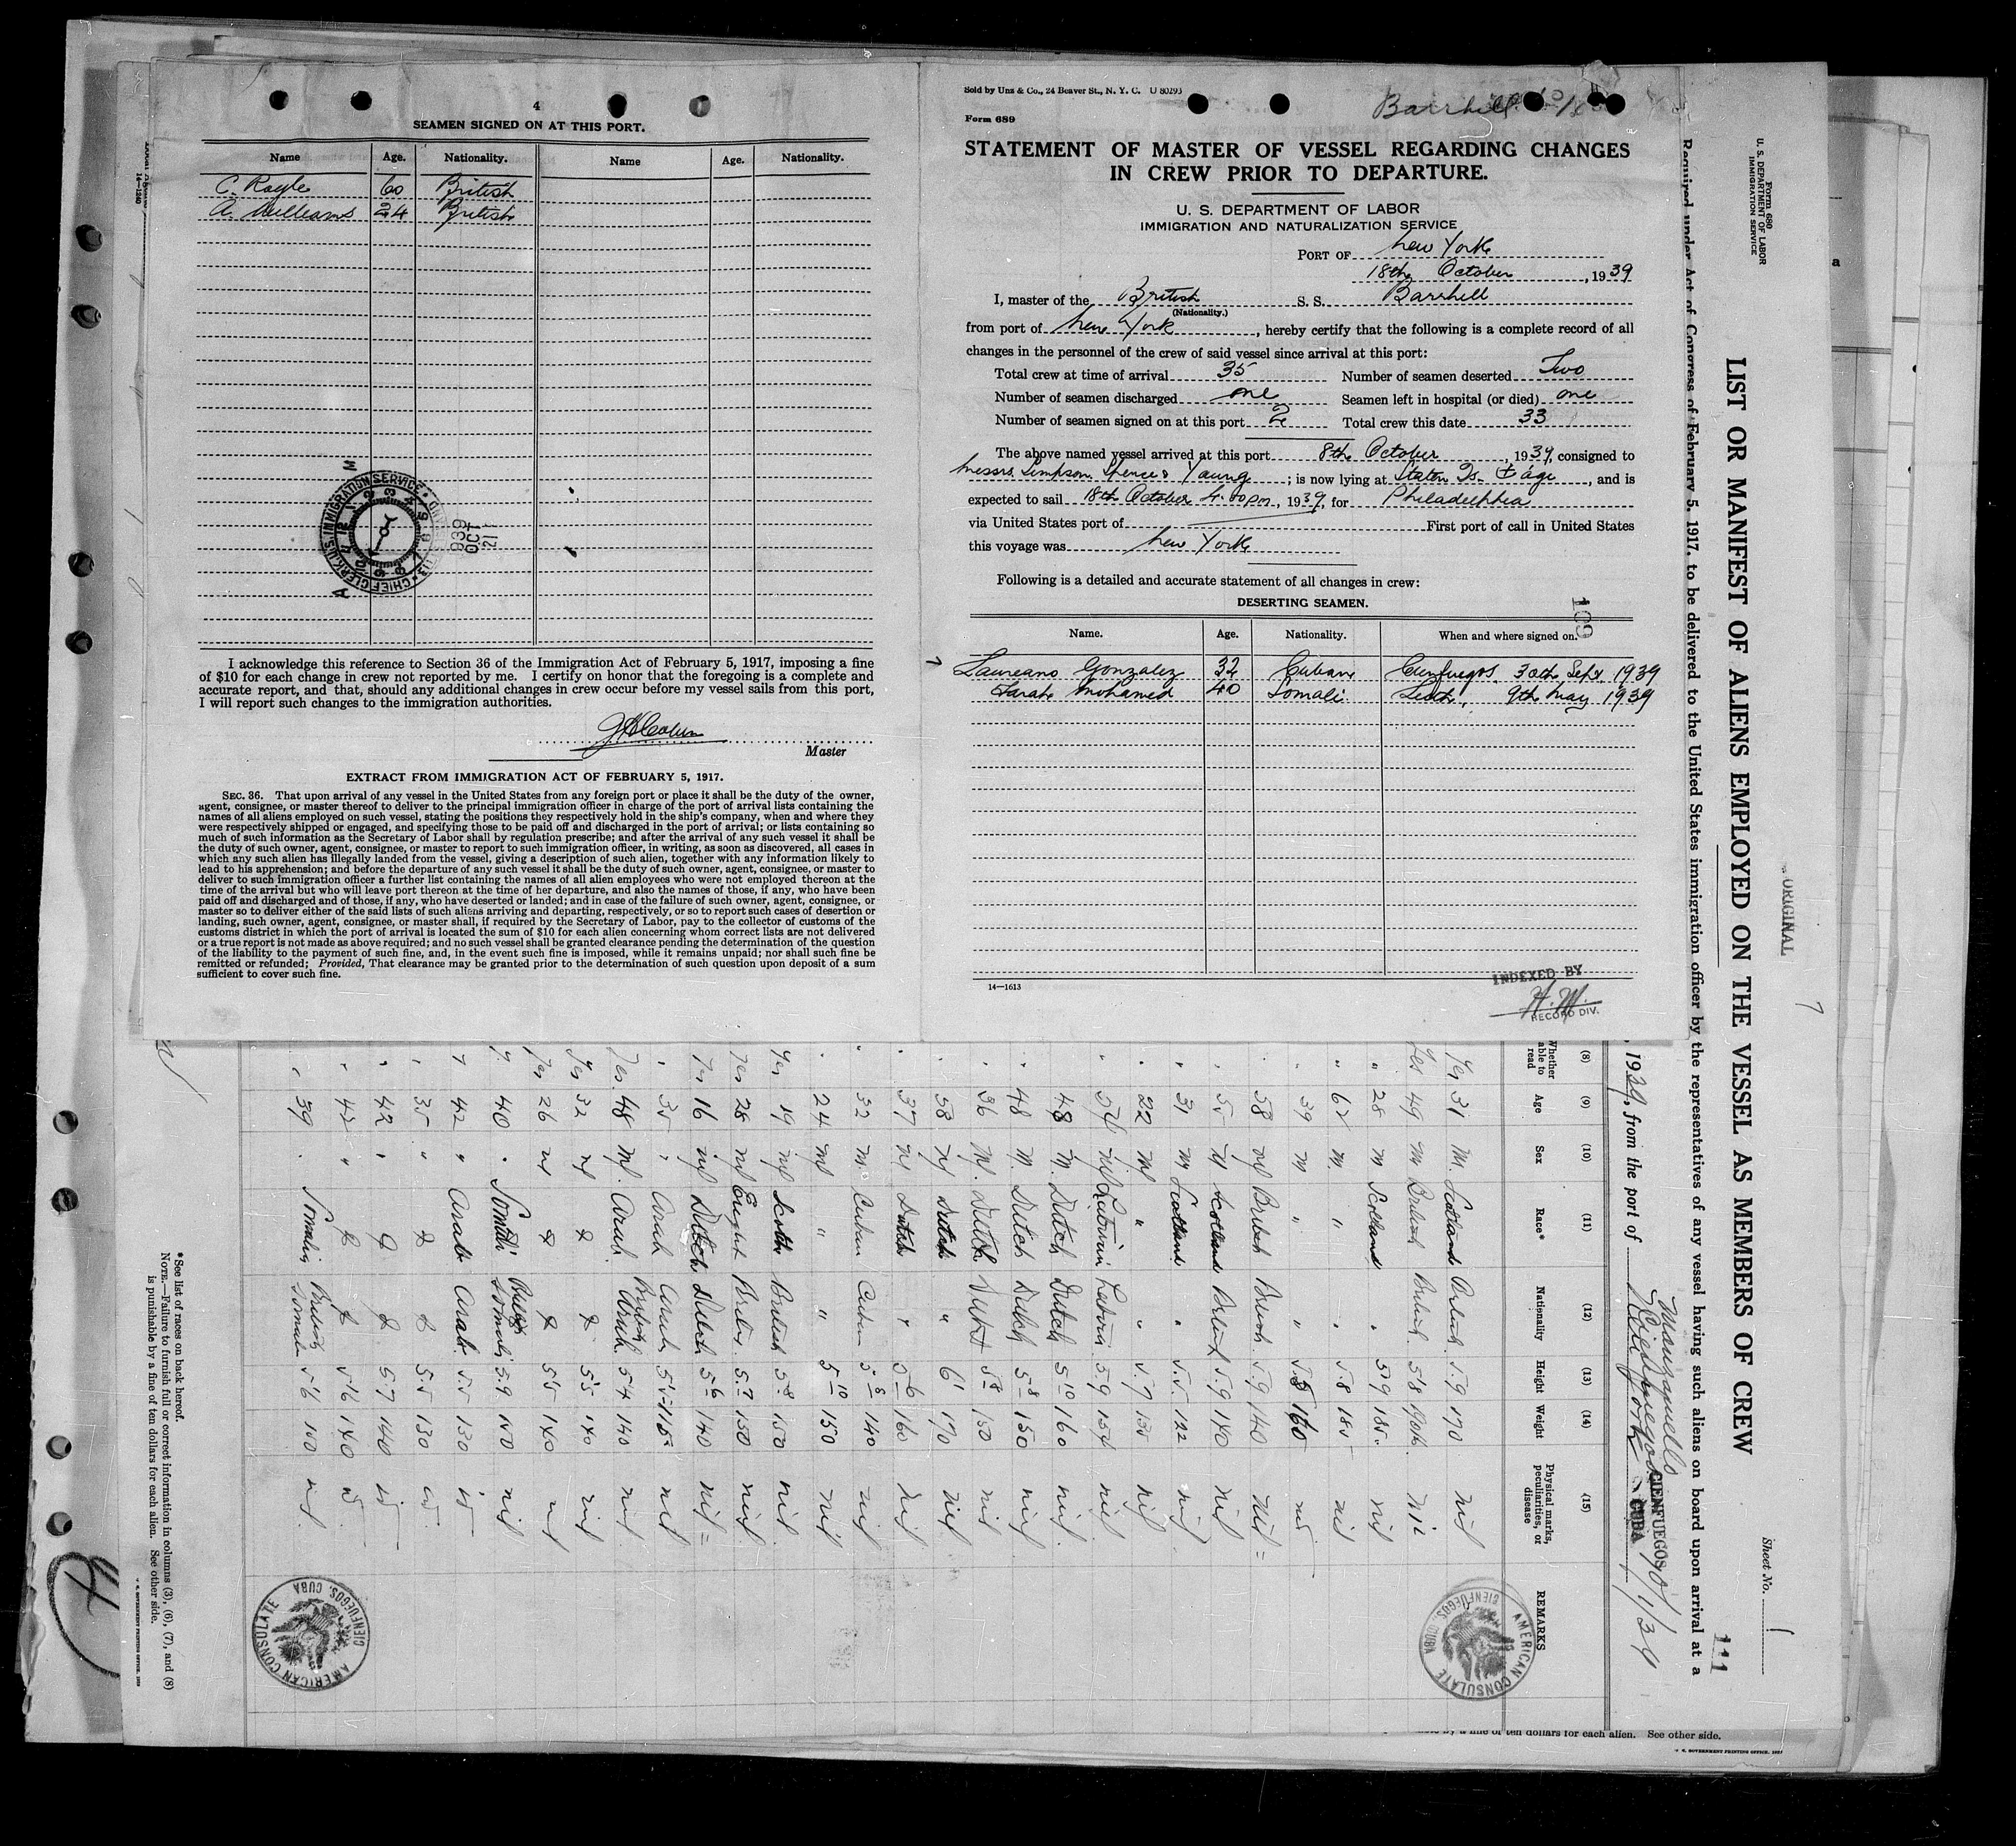 4
SEAMEN SIGNED ON AT THIS PORT.
Name Age. Nationality. Name Age. Nationality.
C. Royle 60 British
A. Williams 24 British
U.S. IMMIGRATION SERVICE
CHIEF CLERK
OCT
21
I acknowledge this reference to Section 36 of the Immigration Act of February 5, 1917, imposing a fine
of $10 for each change in crew not reported by me. I certify on honor that the foregoing is a complete and
accurate report, and that, should any additional changes in crew occur before my vessel sails from this port,
I will report such changes to the immigration authorities.
Master
EXTRACT FROM IMMIGRATION ACT OF FEBRUARY 5, 1917.
SEC. 36. That upon arrival of any vessel in the United States from any foreign port or place it shall be the duty of the owner,
agent, consignee, or master thereof to deliver to the principal immigration officer in charge of the port of arrival lists containing the
names of all aliens employed on such vessel, stating the positions they respectively hold in the ship's company, when and where they
were respectively shipped or engaged, and specifying those to be paid off and discharged in the port of arrival; or lists containing so
much of such information as the Secretary of Labor shall by regulation prescribe; and after the arrival of any such vessel it shall be
the duty of such owner, agent, consignee, or master to report to such immigration officer, in writing, as soon as discovered, all cases in
which any such alien has illegally landed from the vessel, giving a description of such alien, together with any information likely to
lead to his apprehension; and before the departure of any such vessel it shall be the duty of such owner, agent, consignee, or master to
deliver to such immigration officer a further list containing the names of all alien employees who were not employed thereon at the
time of the arrival but who will leave port thereon at the time of her departure, and also the names of those, if any, who have been
paid off and discharged and of those, if any, who have deserted or landed; and in case of the failure of such owner, agent, consignee, or
master so to deliver either of the said lists of such aliens arriving and departing, respectively, or so to report such cases of desertion or
landing, such owner, agent, consignee, or master shall, if required by the Secretary of Labor, pay to the collector of customs of the
customs district in which the port of arrival is located the sum of $10 for each alien concerning whom correct lists are not delivered
or a true report is not made as above required; and no such vessel shall be granted clearance pending the determination of the question
of the liability to the payment of such fine, and, in the event such fine is imposed, while it remains unpaid; nor shall such fine be
remitted or refunded; Provided, That clearance may be granted prior to the determination of such question upon deposit of a sum
sufficient to cover such fine.
Sold by Unz & Co., 24 Beaver St., N. Y. C. U 80293
Barrhill
Form 689
STATEMENT OF MASTER OF VESSEL REGARDING CHANGES
IN CREW PRIOR TO DEPARTURE.
U. S. DEPARTMENT OF LABOR
IMMIGRATION AND NATURALIZATION SERVICE
PORT OF New York
18th October, 1939
I, master of the British S. S. Barrhill
(Nationality.)
from port of New York, hereby certify that the following is a complete record of all
changes in the personnel of the crew of said vessel since arrival at this port:
Total crew at time of arrival 35 Number of seamen deserted Two
Number of seamen discharged one Seamen left in hospital (or died) one
Number of seamen signed on at this port 2 Total crew this date 33
The above named vessel arrived at this port 8th October, 1939, consigned to
Messrs. Simpson Spence & Young; is now lying at Staten Is., and is
expected to sail 18th October 4.00 pm, 1939, for Philadelphia
via United States port of First port of call in United States
this voyage was New York
Following is a detailed and accurate statement of all changes in crew:
DESERTING SEAMEN.
109
Name. Age. Nationality. When and where signed on.
Laureano Gonzalez 32 Cuban Cienfuegos 30th Sept 1939
Farah Mohamed 40 Somali Leith, 9th May 1939
14—1613
INDEXED BY
H. M.
RECORD DIV.
Form 680
U. S. DEPARTMENT OF LABOR
IMMIGRATION SERVICE
Sheet No. 1
ORIGINAL
111
LIST OR MANIFEST OF ALIENS EMPLOYED ON THE VESSEL AS MEMBERS OF CREW
Required under Act of Congress of February 5, 1917, to be delivered to the United States immigration officer by the representatives of any vessel having such aliens on board upon arrival at a
, 1939, from the port of Cienfuegos
CIENFUEGOS
CUBA
(8) (9) (10) (11) (12) (13) (14) (15)
Whether able to read Age Sex Race* Nationality Height Weight Physical marks, peculiarities, or disease REMARKS
Yes 31 M. Scotland British 5.9 170 nil
Yes 49 M British British 5'8 nil
" 28 M Scotland " 5'9 185 nil
" 62 M. " " 5.8 185 nil
" 39 M " " 160 nil
58 M British British 5.9 140 nil
55 M Scotland British 5.9 140 nil
" 31 M Scotland " 5.5 122 nil
" 22 M " " 5.7 135 nil
M Latvian Latvia 5.9 154 nil
48 M. Dutch Dutch 5 10 160 nil
48 M. Dutch Dutch 5 8 150 nil
36 M. Dutch Dutch 5 8 150 nil
58 M Dutch " 6' 170 nil
37 M Dutch " 5 6 160 nil
32 M. Cuban Cuban 5 8 140 nil
24 M " " 5 10 150 nil
Yes 19 M Scotch British 5.8 150 nil
Yes 28 M British 5.7 150 nil
Yes 16 M Dutch Dutch 5 6 140 nil
" 35 " Arab Arab 5'5 115 nil
Yes 48 M. Arab British Arab 5'4 140 nil
Yes 32 M 5'5 140 nil
Yes 26 M 5'5 140 nil
40 " Somali British Somali 5.9 150 nil
42 " Arab Arab 5.5 130
" 35 " 5.5 130
" 42 " 5.7 140
" 42 " 5'6 140
" 39 . Somali British Somali 5'6 150 nil
AMERICAN CONSULATE
CIENFUEGOS, CUBA
AMERICAN CONSULATE
CIENFUEGOS, CUBA
*See list of races on back hereof.
NOTE.—Failure to furnish full or correct information in columns (3), (6), (7), and (8)
is punishable by a fine of ten dollars for each alien. See other side.
14—1240
of ten dollars for each alien. See other side.